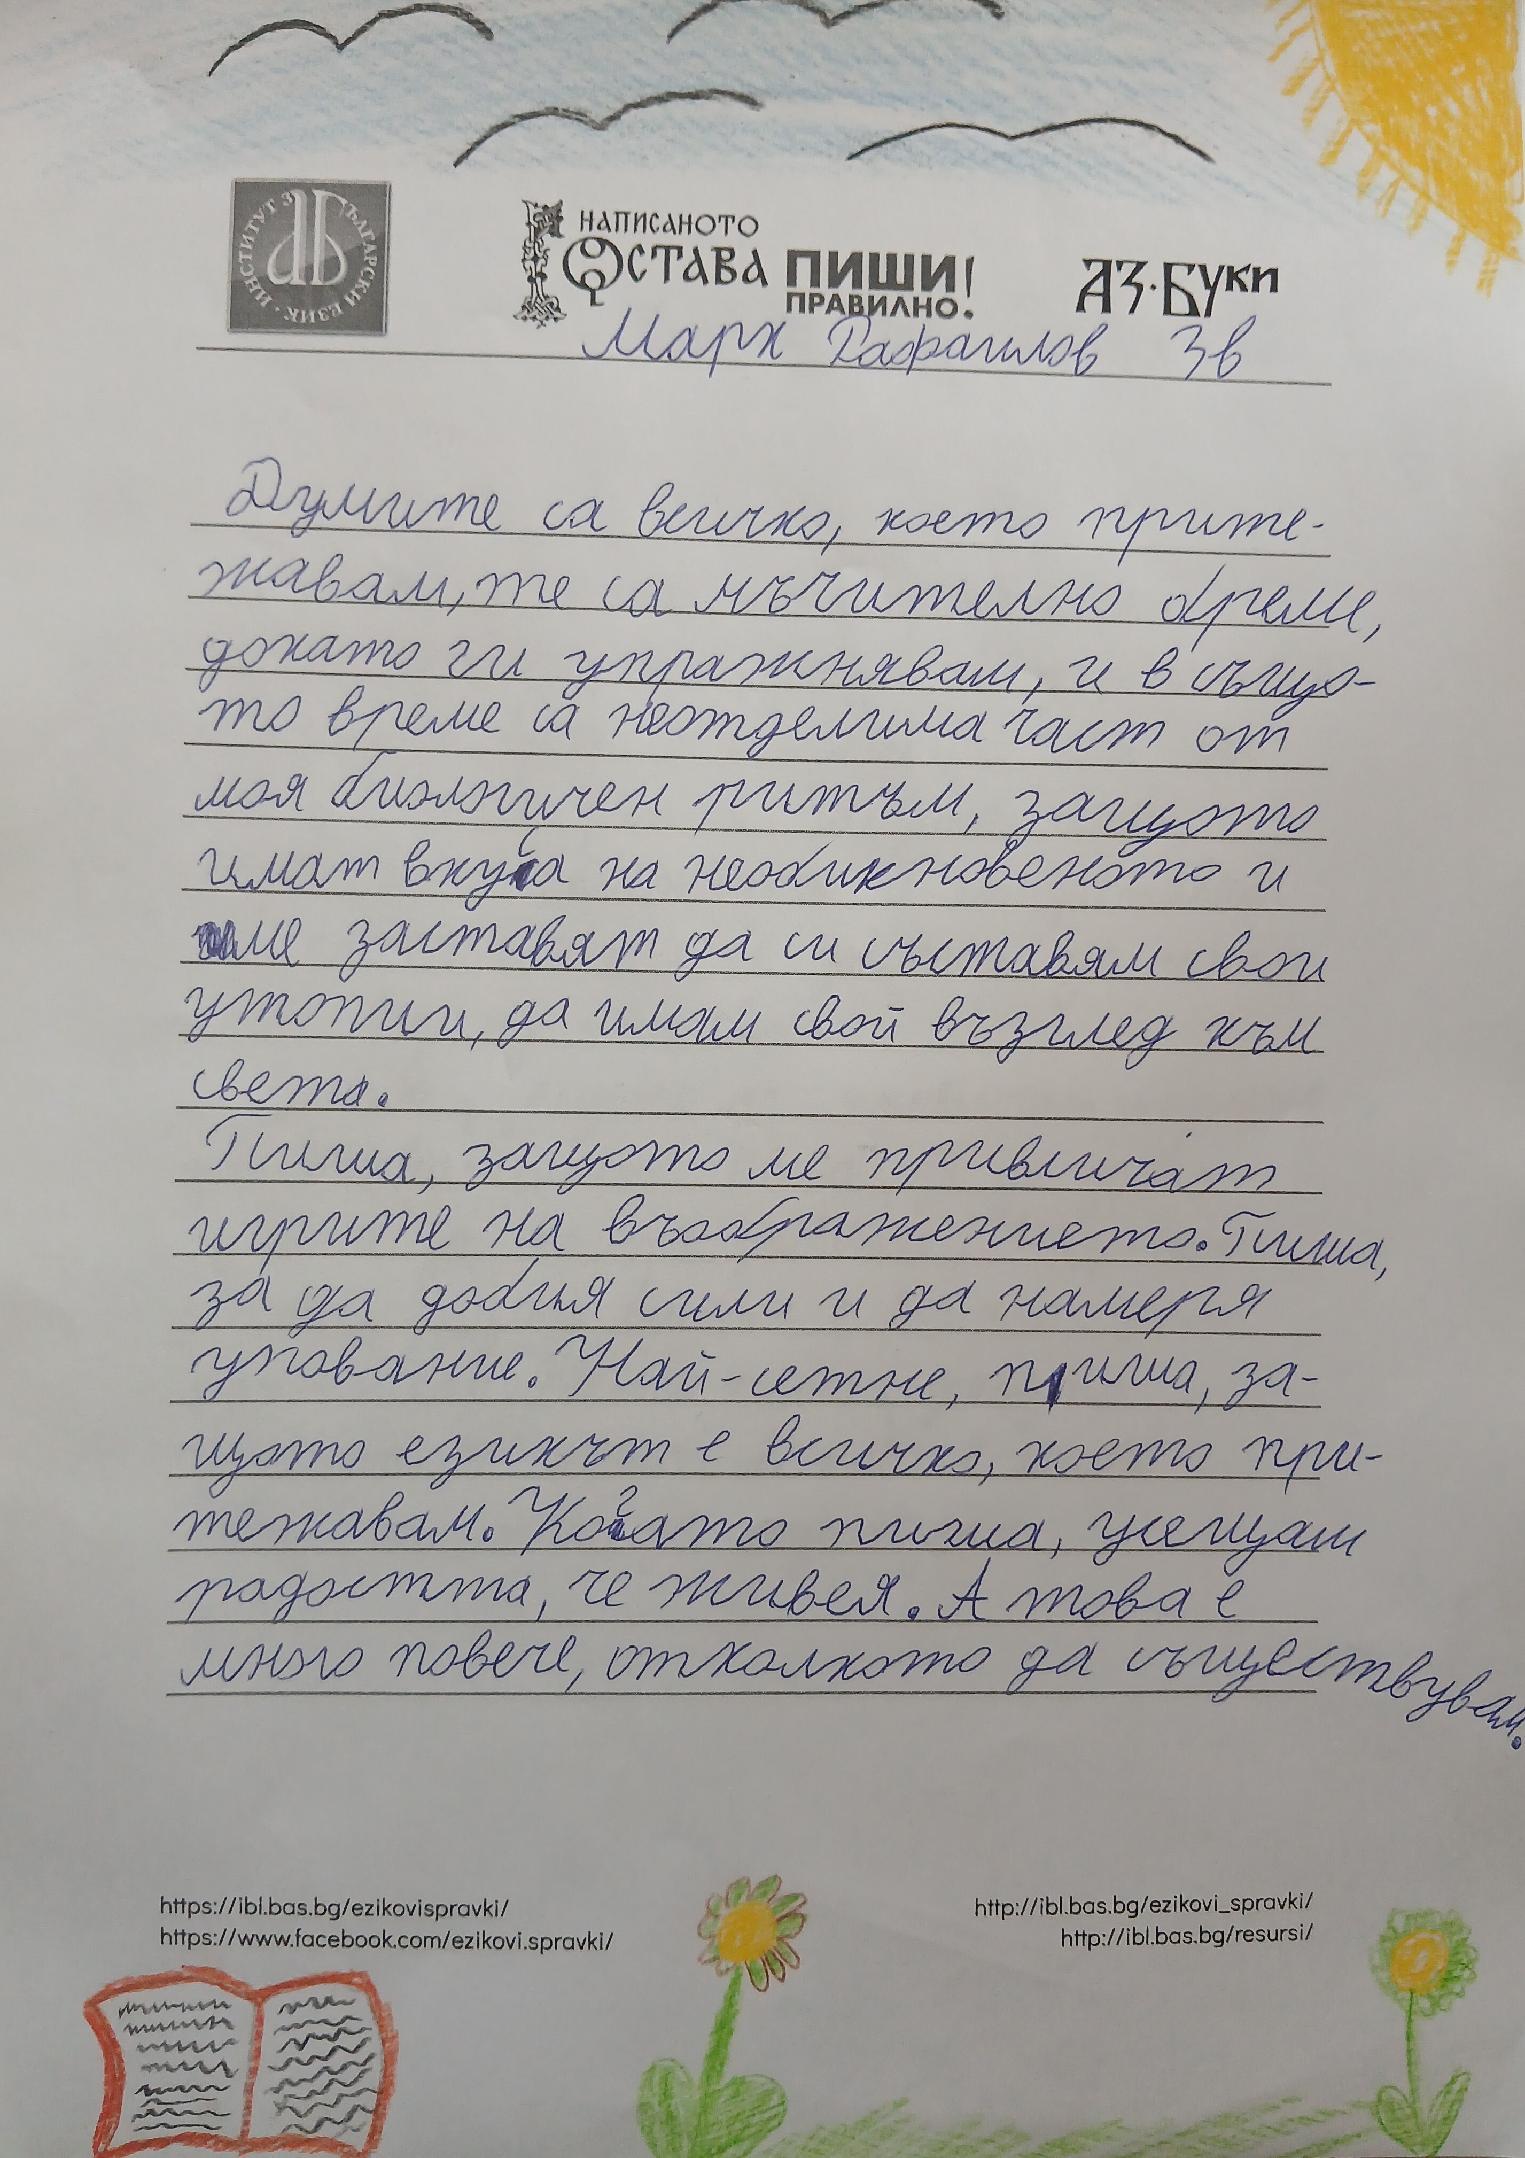 ИНСТИТУТ ЗА БЪЛГАРСКИ ЕЗИК
НАПИСАНОТО
ОСТАВА ПИШИ!
ПРАВИЛНО.
АЗ·БУКИ
Марк Рафаилов 3в
Думите са всичко, което прите-
жавам, те са мъчително бреме,
докато ги упражнявам, и в също-
то време са неотделима част от
моя биологичен ритъм, защото
имат вкуса на необикновеното и
ме заставят да си съставям свои
утопии, да имам свой възглед към
света.
Пиша, защото ме привличат
игрите на въображението. Пиша,
за да добия сили и да намеря
упование. Най-сетне, пиша, за-
щото езикът е всичко, което при-
тежавам. Когато пиша, усещам
радостта, че живея. А това е
много повече, отколкото да съществувам.
https://ibl.bas.bg/ezikovispravki/
https://www.facebook.com/ezikovi.spravki/
http://ibl.bas.bg/ezikovi_spravki/
http://ibl.bas.bg/resursi/